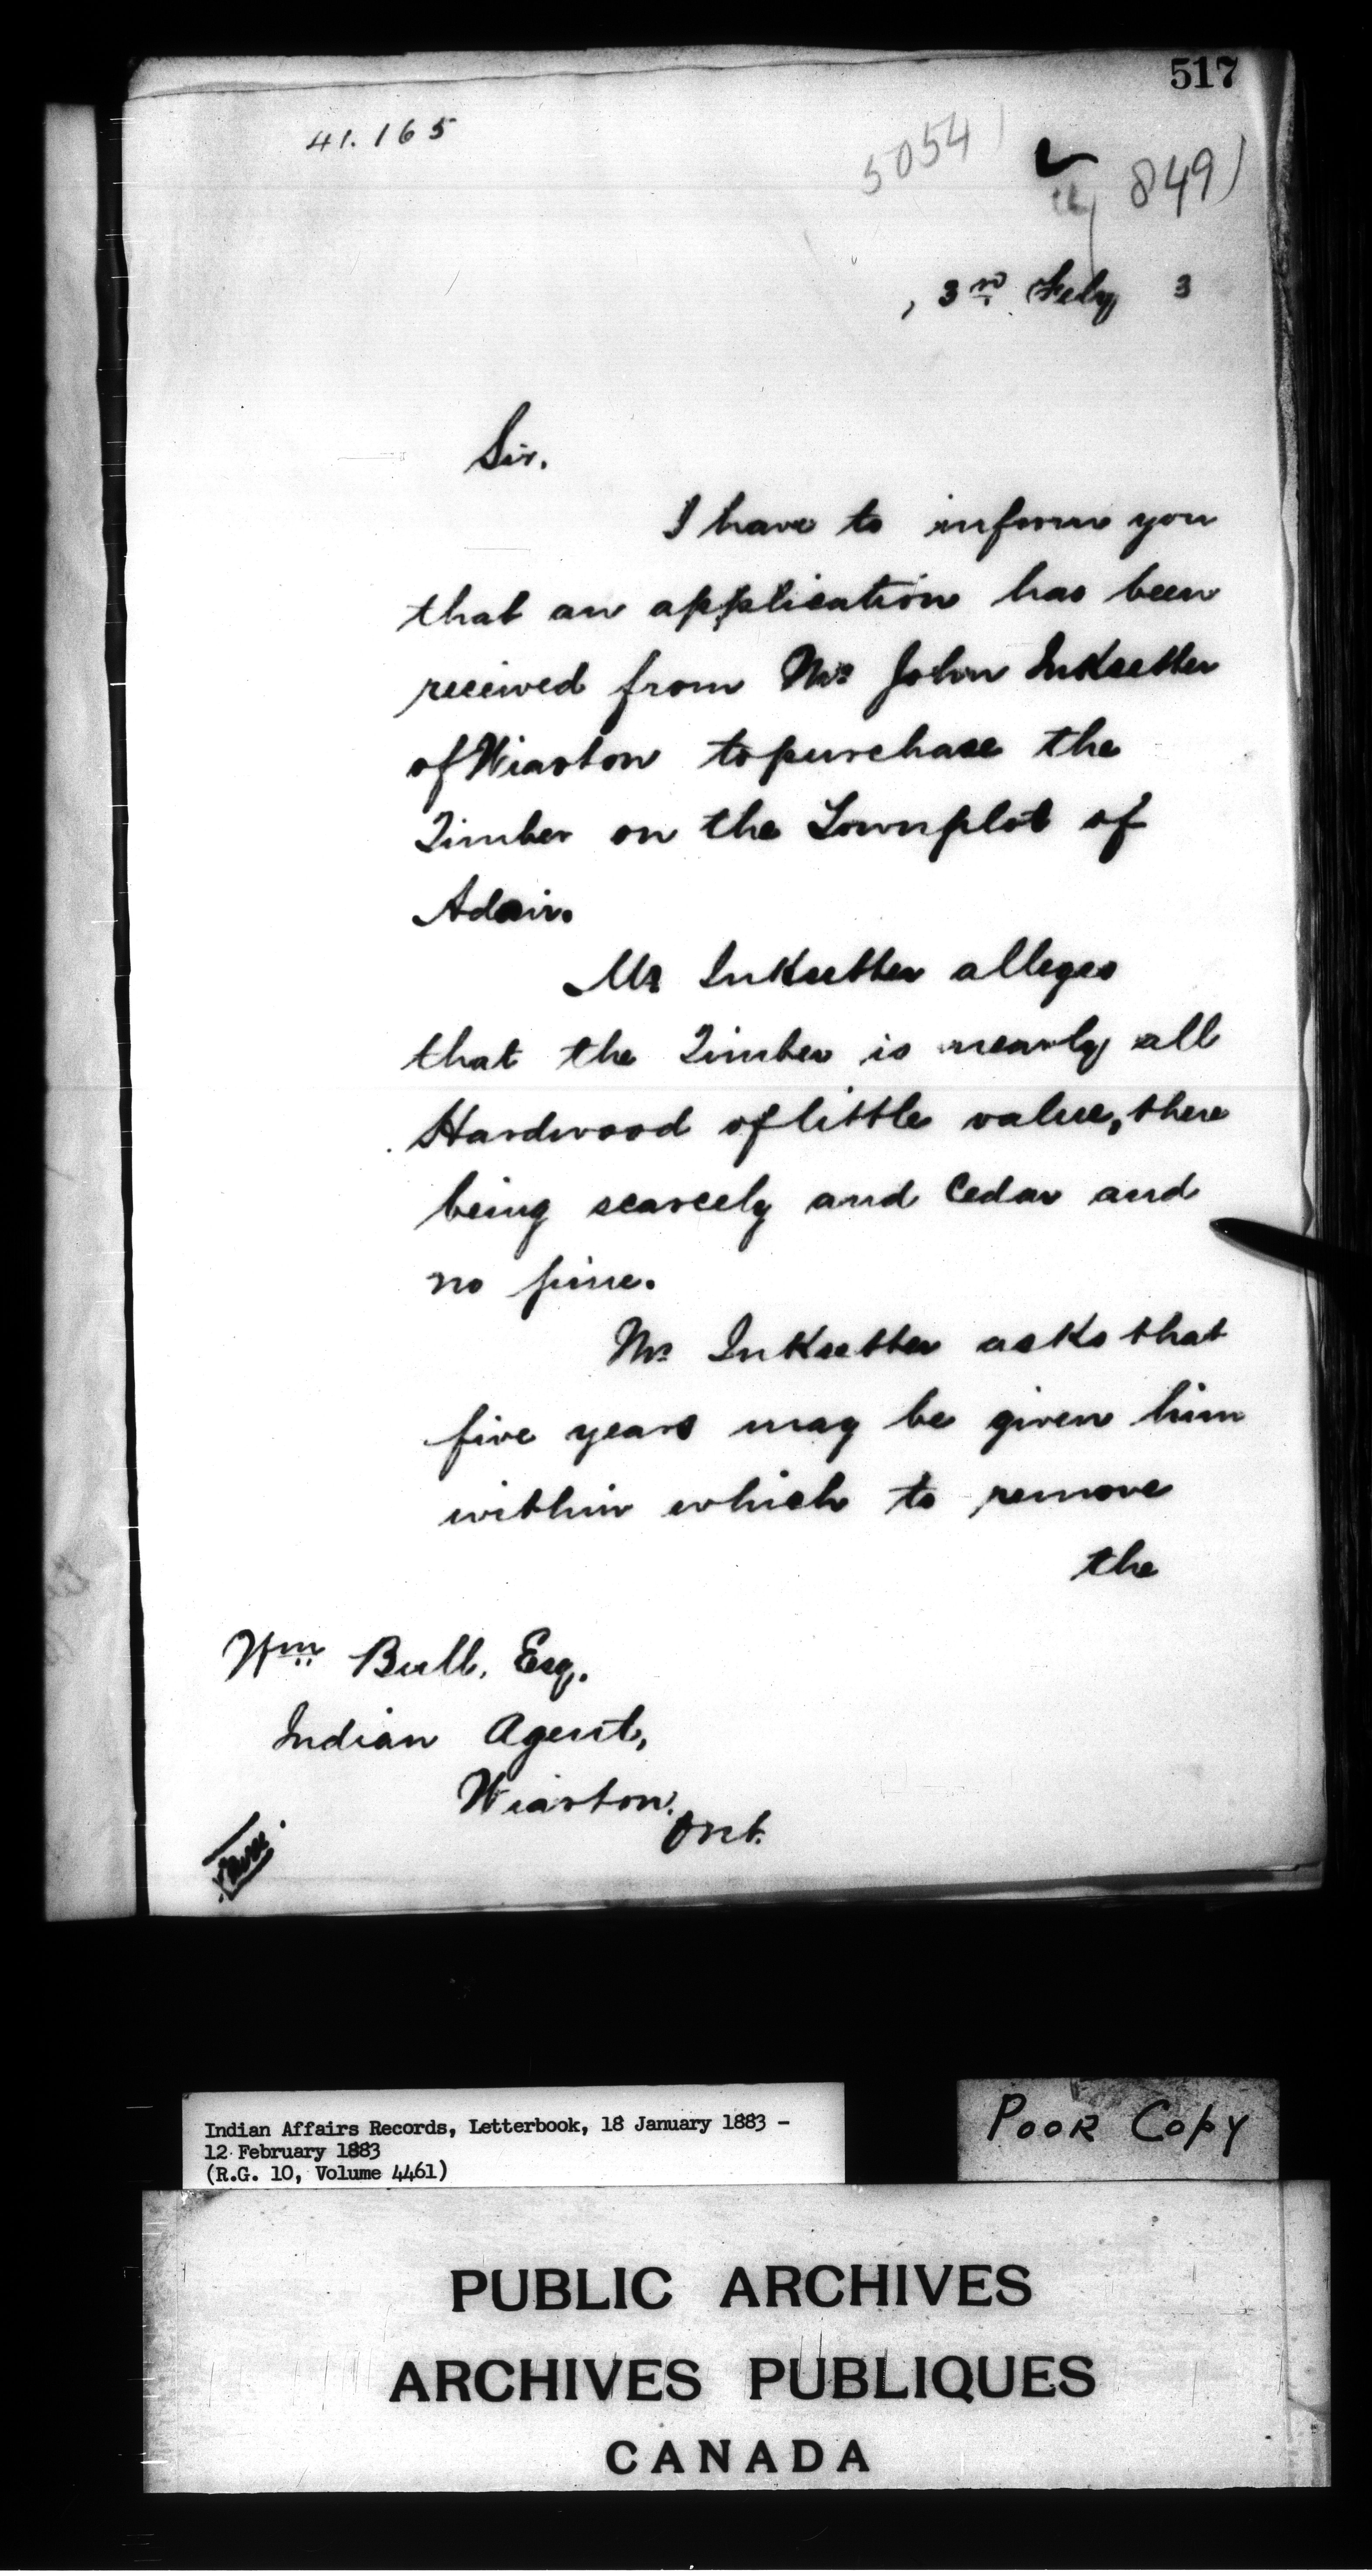 517
41.165
5054
849
, 3rd Feby 3
Sir.
I have to inform you
that an application has been
received from Mr John Inksetter
of Wiarton to purchase the
Timber on the Townplot of
Adair.
Mr Inksetter alleges
that the Timber is nearly all
Hardwood of little value, there
being scarcely and Cedar and
no pine.
Mr Inksetter asks that
five years may be given him
within which to remove
the
Wm Bull, Esq.
Indian Agent,
Wiarton.
Ont.
Indian Affairs Records, Letterbook, 18 January 1883 -
12 February 1883
(R.G. 10, Volume 4461)
POOR COPY
PUBLIC ARCHIVES
ARCHIVES PUBLIQUES
CANADA